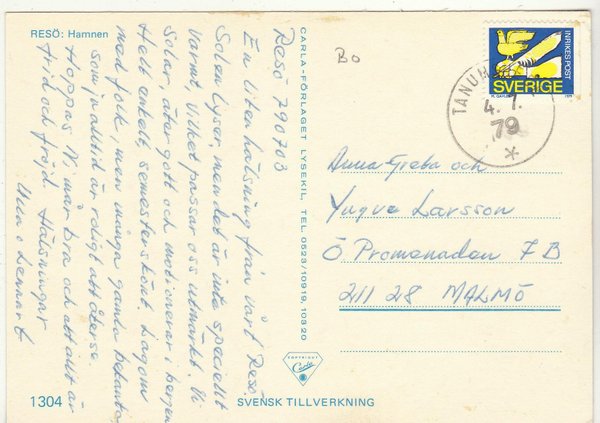 RESÖ: Hamnen
Bo
Resö 790703
En liten hälsning från vårt Resö.
Solen lyser, men det är inte speciellt
varmt, vilket passar oss utmärkt. Vi
solar, äter gott och motionerar i bergen
Helt enkelt, semesterskönt. Lagom
med folk men många gamla bekanta,
som ju alltid är roligt att återse.
Hoppas Ni mår bra och att allt är
frid och fröjd. Hälsningar
o Lennart
CARLA-FÖRLAGET LYSEKIL, TEL 0523/10919, 10320
INRIKES POST
SVERIGE
1979
TANUM
4. 7.
79
Anna Greta och
Yngve Larsson
Ö Promenaden 7 B
211 28 MALMÖ
COPYRIGHT
Carla
1304
SVENSK TILLVERKNING